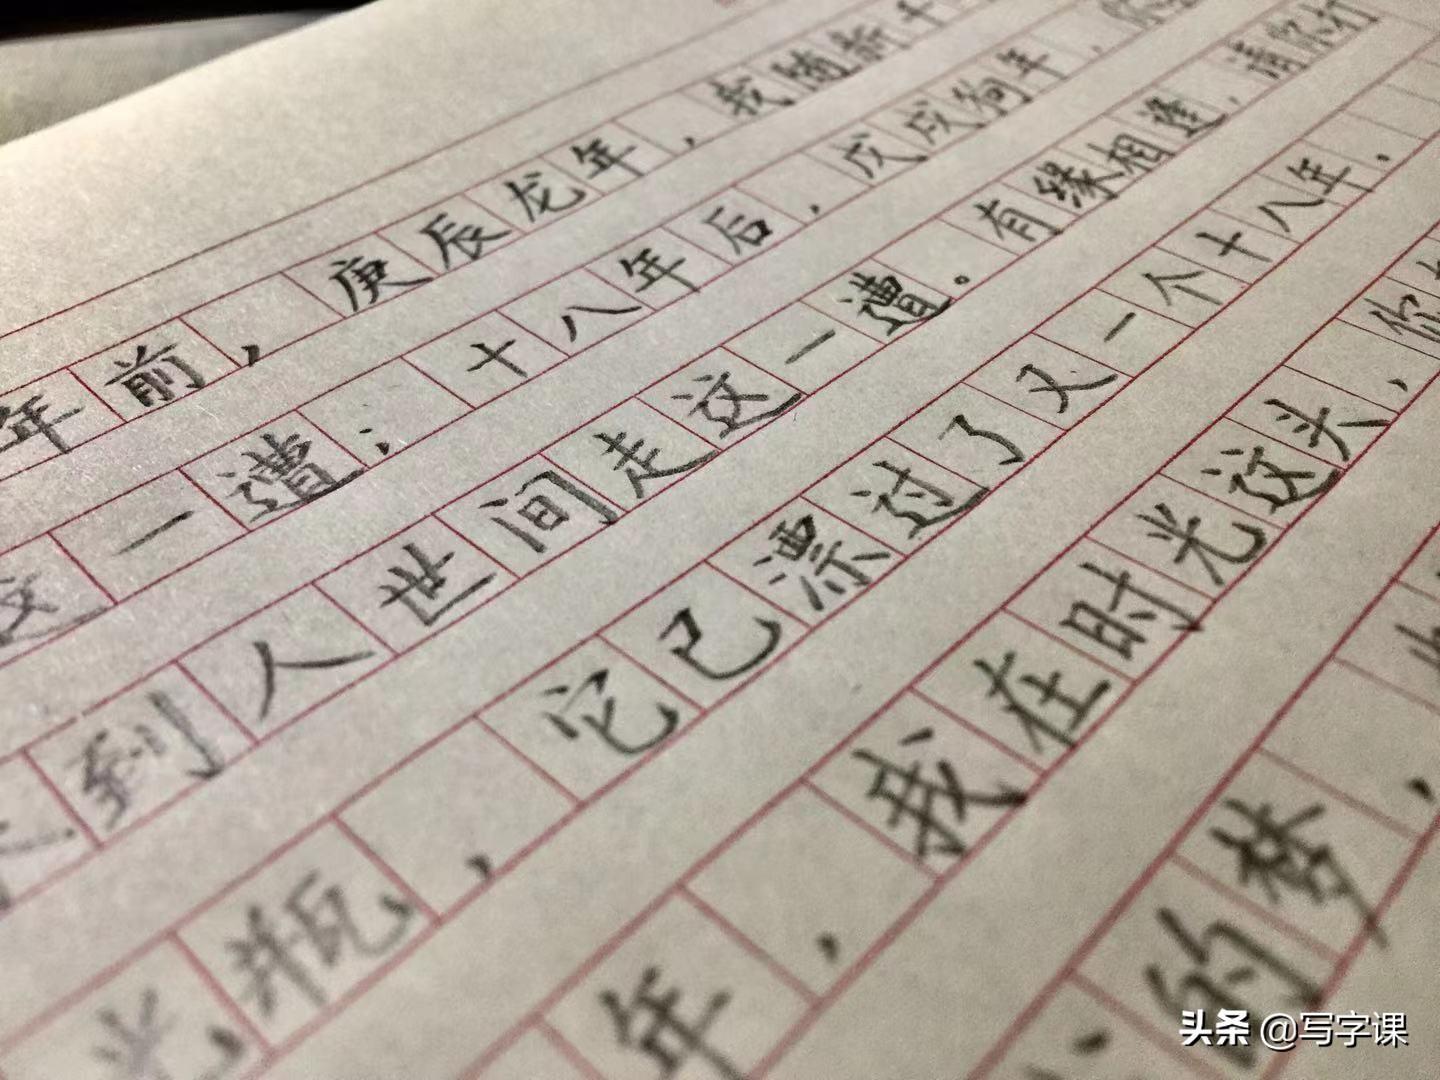 年前，庚辰龙年，我随新千
一遭；十八年后，戊戌狗年，你
到人世间走这一遭。有缘相逢，请你打
光瓶，它已漂过了又一个十八年。
年，我在时光这头，你
的梦，
头条 @写字课